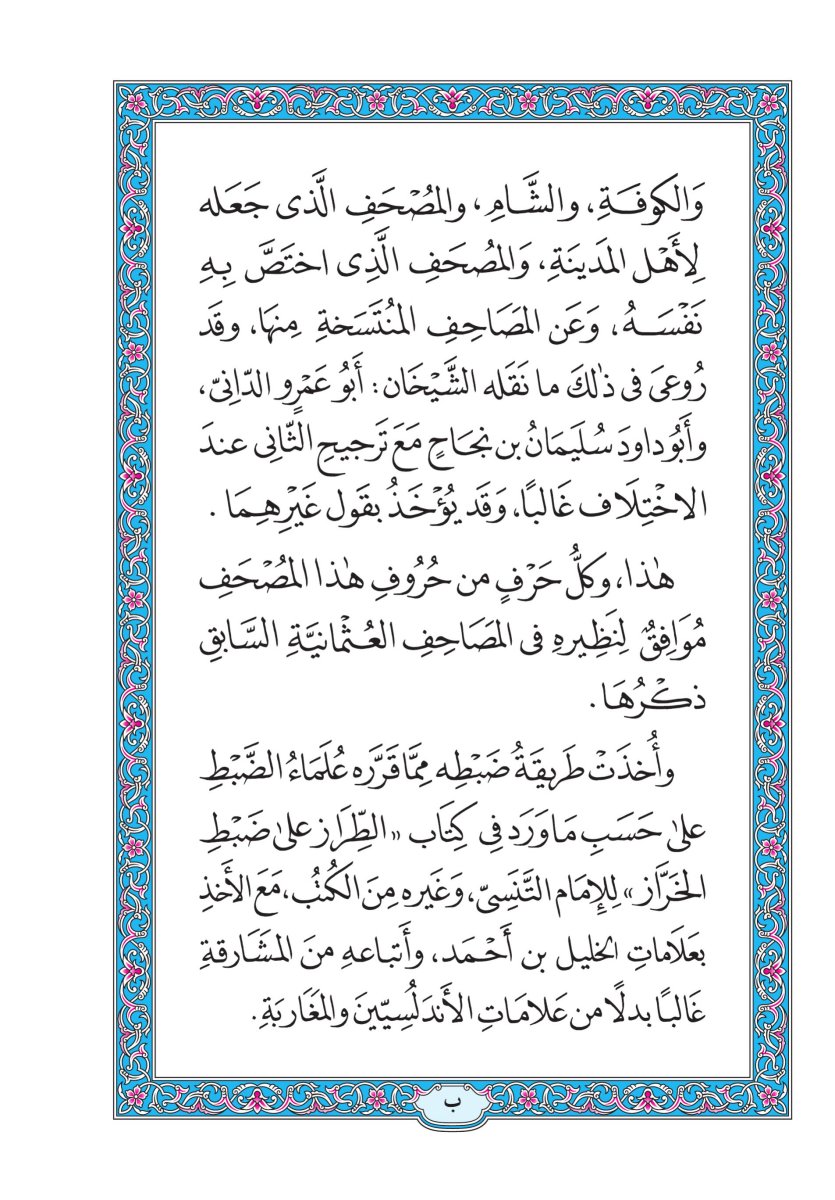 وَالكوفَةِ، والشَّامِ، والمُصْحَفِ الَّذى جَعَله
لِأَهْل المَدينَةِ، وَالمُصحَفِ الَّذِى اختَصَّ بِهِ
نَفْسَهُ، وَعَن المَصَاحِفِ المُنتَسَخةِ مِنهَا، وقَد
رُوعىَ فى ذٰلكَ ما نَقَله الشَّيْخَان: أَبوُ عَمْرٍو الدّانِىّ،
وأَبوُداودَ سُلَيمَانُ بن نجَاحٍ مَعَ تَرجيحِ الثّانِى عندَ
الاخْتِلَاف غَالبًا، وَقَد يُؤْخَذُ بقَول غَيْرِهِمَا .
هٰذا، وَكلُّ حَرْفٍ من حُرُوفِ هٰذا المُصْحَفِ
مُوَافِقٌ لِنَظِيرهِ فى المَصَاحِفِ العُثْمانيَّةِ السَّابقِ
ذكْرُهَا .
وأُخذَتْ طَريقَةُ ضَبْطِه مِمَّا قَرَّرَه عُلَمَاءُ الضَّبْطِ
علىٰ حَسَبِ مَا وَرَد فِى كِتَاب «الطِّرَاز علىٰ ضَبْطِ
الخَرَّاز» لِلإِمَام التَّنَسِىّ، وَغَيره مِنَ الكُتُب، مَعَ الأَخذِ
بعَلَاماتِ الخليل بن أَحْمَد، وأَتباعهِ منَ المشَارقةِ
غَالبًا بدلًا من عَلامَاتِ الأَندَلُسِيّينَ والمغَاربَةِ .
ب